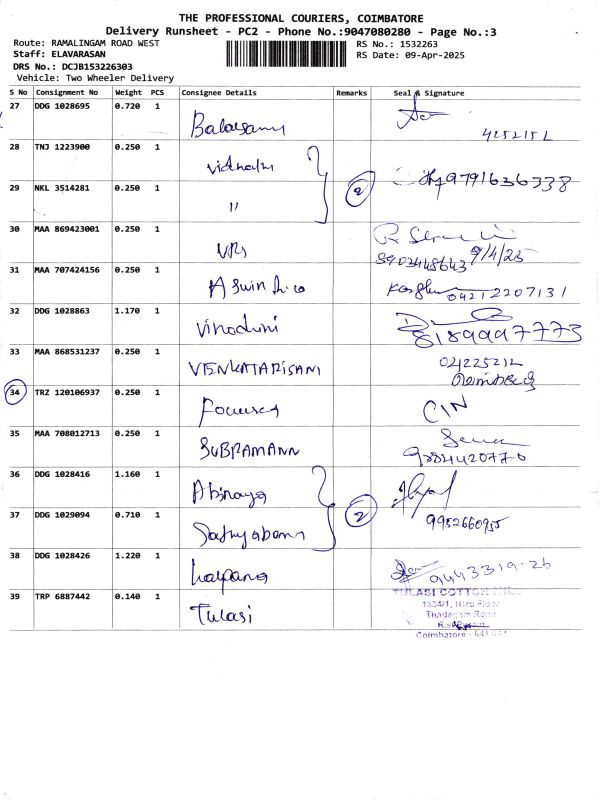 THE PROFESSIONAL COURIERS, COIMBATORE
Delivery Runsheet - PC2 - Phone No.:9047080280 - Page No.:3
Route: RAMALINGAM ROAD WEST
RS No.: 1532263
Staff: ELAVARASAN
RS Date: 09-Apr-2025
DRS No.: DCJB153226303
Vehicle: Two Wheeler Delivery
S No Consignment No Weight PCS Consignee Details Remarks Seal & Signature
27 DDG 1028695 0.720 1 Balasamy
4252152
28 TNJ 1223900 0.250 1
29 NKL 3514281 0.250 1 " 2 9791636338
30 MAA 869423001 0.250 1 VRS
9/4/25
31 MAA 707424156 0.250 1 Aswin & co 04212207131
32 DDG 1028863 1.170 1 Vinodhini 8189997773
33 MAA 868531237 0.250 1
34 TRZ 120106937 0.250 1 CIN
35 MAA 708012713 0.250 1 SUBRAMANN
9884420770
36 DDG 1028416 1.160 1 Abinaya
37 DDG 1029094 0.710 1 Sathyabama 2 9952660955
38 DDG 1028426 1.220 1 kalpana 9443319.26
39 TRP 6887442 0.140 1 Tulasi
TULASI COTTON MILL
Thadagam Road
Coimbatore - 641